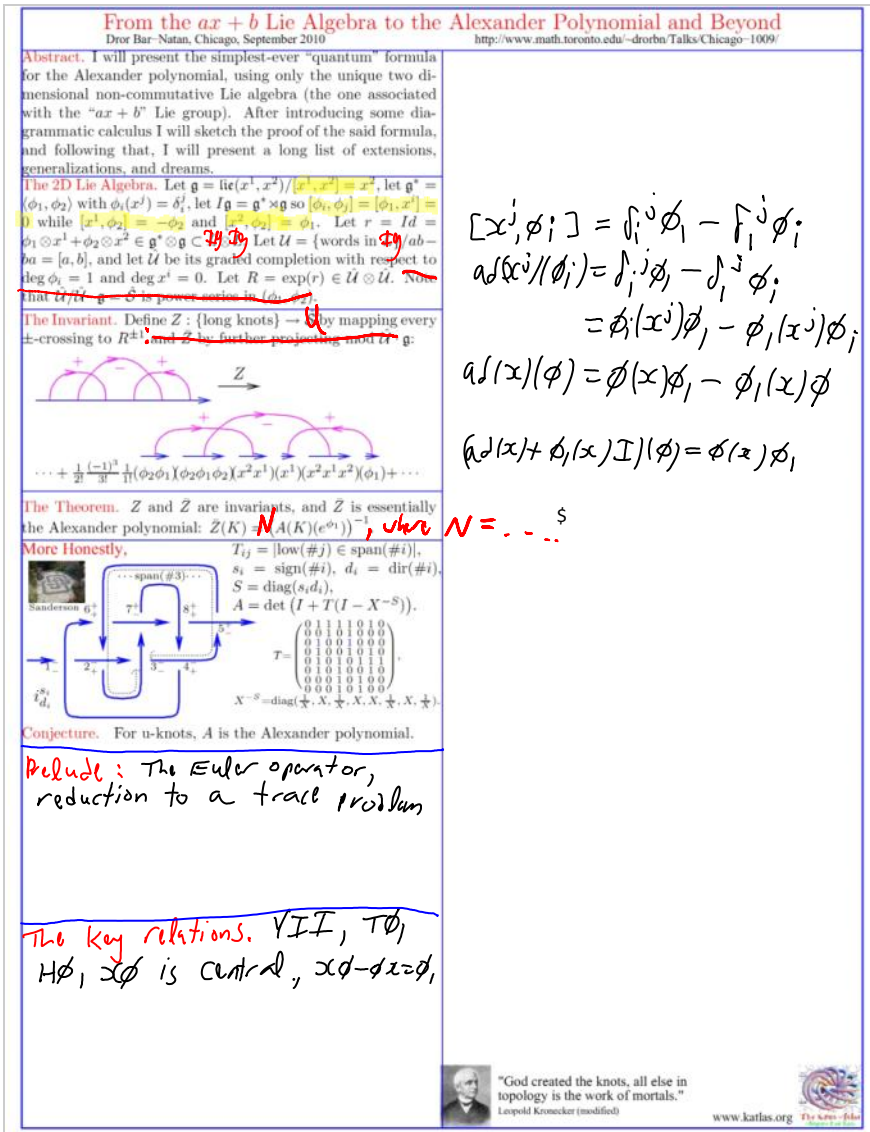 From the ax + b Lie Algebra to the Alexander Polynomial and Beyond
Dror Bar−Natan, Chicago, September 2010 http://www.math.toronto.edu/~drorbn/Talks/Chicago−1009/
Abstract. I will present the simplest-ever “quantum” formula
for the Alexander polynomial, using only the unique two di-
mensional non-commutative Lie algebra (the one associated
with the “ax + b” Lie group). After introducing some dia-
grammatic calculus I will sketch the proof of the said formula,
and following that, I will present a long list of extensions,
generalizations, and dreams.
The 2D Lie Algebra. Let 𝔤 = lie(x¹, x²)/[x¹, x²] = x², let 𝔤* =
⟨φ₁, φ₂⟩ with φᵢ(xʲ) = δᵢʲ, let I𝔤 = 𝔤* ⋊ 𝔤 so [φᵢ, φⱼ] = [φ₁, xⁱ] =
0 while [x¹, φ₂] = −φ₂ and [x², φ₂] = φ₁. Let r = Id =
φ₁⊗x¹+φ₂⊗x² ∈ 𝔤*⊗𝔤 ⊂ I𝔤 ⊗ I𝔤. Let 𝒰 = {words in I𝔤}/ab−
ba = [a, b], and let Û be its graded completion with respect to
deg φᵢ = 1 and deg xⁱ = 0. Let R = exp(r) ∈ Û ⊗ Û. Note
that
is power series in (φ₁, φ₂).
The Invariant. Define Z : {long knots} → U by mapping every
±-crossing to R^{±1}: and Z̄ by further projecting mod Û · 𝔤:
+ − + Z
+ − +
··· + 1/2! (−1)³/3! 1/1! (φ₂φ₁)(φ₂φ₁φ₂)(x²x¹)(x¹)(x²x¹x²)(φ₁)+···
The Theorem. Z and Z̄ are invariants, and Z̄ is essentially
the Alexander polynomial: Z̄(K) = N (A(K)(e^{φ₁}))⁻¹, where N = .... $
More Honestly,
Tᵢⱼ = |low(#j) ∈ span(#i)|,
sᵢ = sign(#i), dᵢ = dir(#i),
S = diag(sᵢdᵢ),
A = det (I + T(I − X^{−S})).
···span(#3)···
Sanderson 6₊⁺ 7₋⁺ 8₊⁺
5₋
1₋ 2₊ 3₋ 4₊
i^{sᵢ}_{dᵢ}
T=
0 1 1 1 1 0 1 0
0 0 1 0 1 0 0 0
0 1 0 0 1 0 0 0
0 1 0 0 1 0 1 0
0 1 0 1 0 1 1 1
0 1 0 1 0 0 1 0
0 0 0 1 0 1 0 0
X^{−S}=diag(1/X, X, 1/X, X, X, 1/X, X, 1/X).
Conjecture. For u-knots, A is the Alexander polynomial.
Prelude: The Euler operator,
reduction to a trace problem
The key relations. YII, Tφ,
Hφ, xφ is central, xφ−φx=φ,
[xʲ, φᵢ] = δᵢʲφ₁ − δ₁ʲφᵢ
ad(xʲ)(φᵢ) = δᵢʲφ₁ − δ₁ʲφᵢ
= φᵢ(xʲ)φ₁ − φ₁(xʲ)φᵢ
ad(x)(φ) = φ(x)φ₁ − φ₁(x)φ
(ad(x) + φ₁(x)I)(φ) = φ(x)φ₁
"God created the knots, all else in
topology is the work of mortals."
Leopold Kronecker (modified)
www.katlas.org